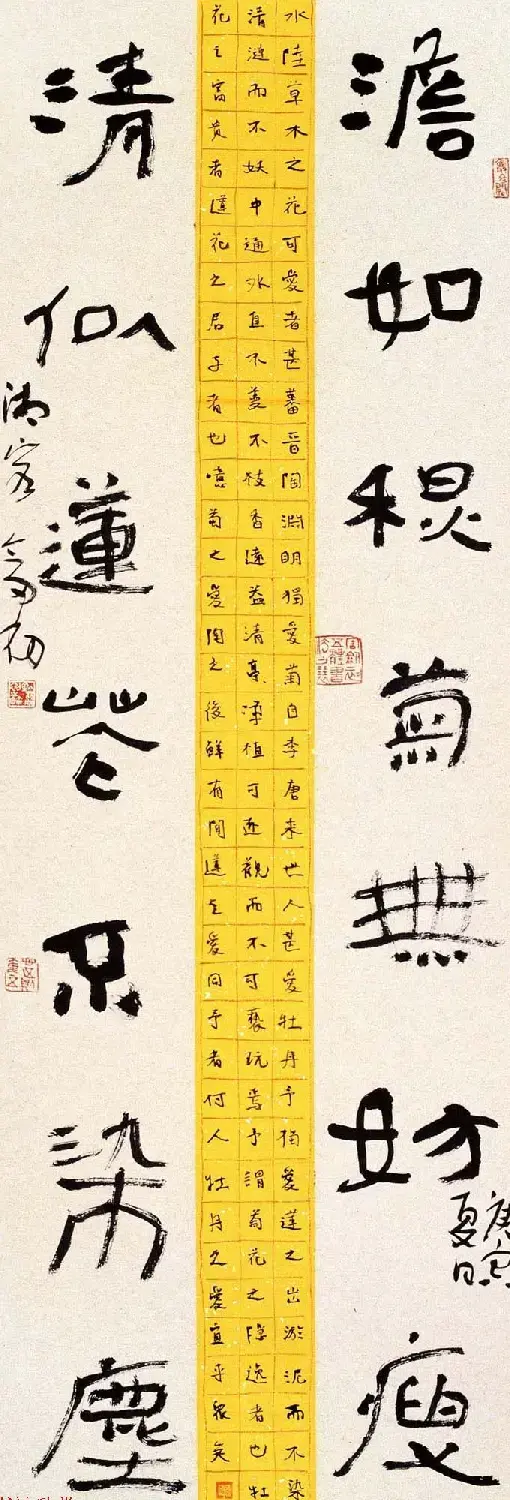 澹如秋菊無妨瘦
庚寅
夏日
水陸草木之花可愛者甚蕃晉陶淵明獨愛菊自李唐來世人甚愛牡丹予獨愛蓮之出淤泥而不染
清漣而不妖中通外直不蔓不枝香遠益清亭淨植可遠觀而不可褻玩焉予謂菊花之隱逸者也牡
花之富貴者蓮花之君子者也噫菊之愛陶之後鮮有聞蓮之愛同予者何人牡丹之愛宜乎眾矣
清似蓮花不染塵
湘客